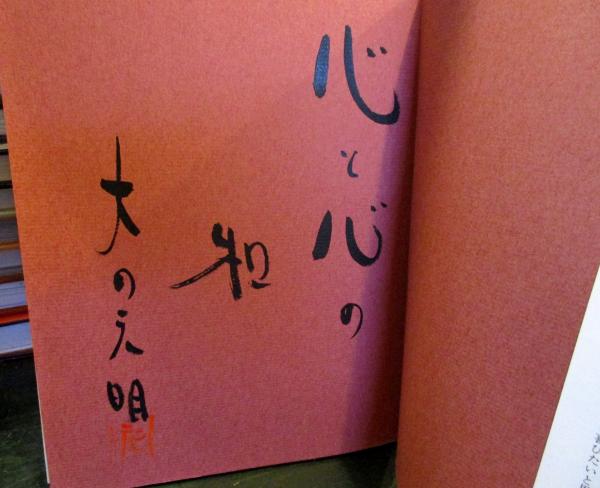 心と心の
和
大の元明